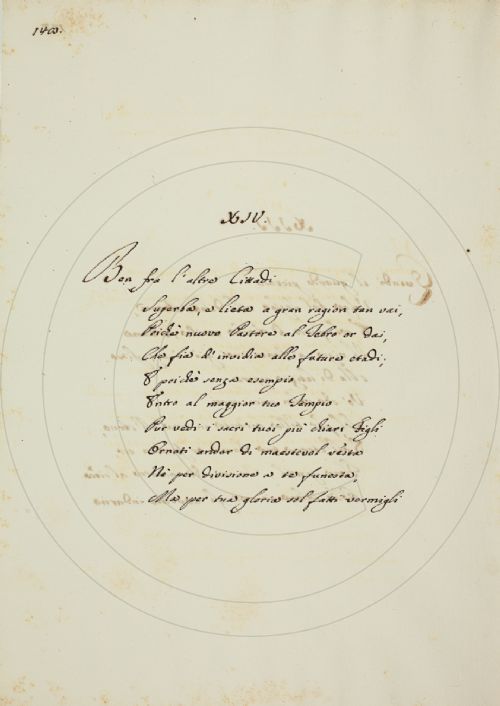 140.
XIV.
Ben fra l'altre Cittadi
Superba, e lieta a gran ragion tan vai,
Poichè nuovo Pastore al Tebro or dai,
Che fia d'invidia alle future etadi;
E poichè senza esempio
Entro al maggior tuo Tempio
Pur vedi i sacri tuoi più chiari Figli
Ornati andar di maestevol vesta
Nè per divisione a te funesta,
Ma per tua gloria sol fatti vermigli